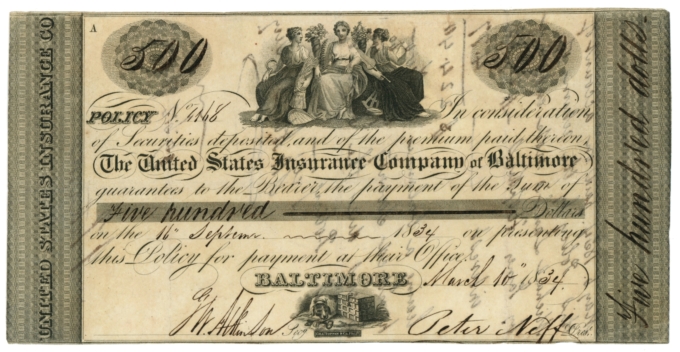 A
500
500
UNITED STATES INSURANCE CO
Five hundred dolls.
POLICY N. 2168 In consideration
of Securities deposited, and of the premium paid thereon,
The United States Insurance Company of Baltimore
guarantees to the Bearer, the payment of the Sum of
Five hundred Dollars
on the 16th 1834 on presenting
this Policy for payment at their Office.
BALTIMORE March 10th 1834
Secy Peter Neff